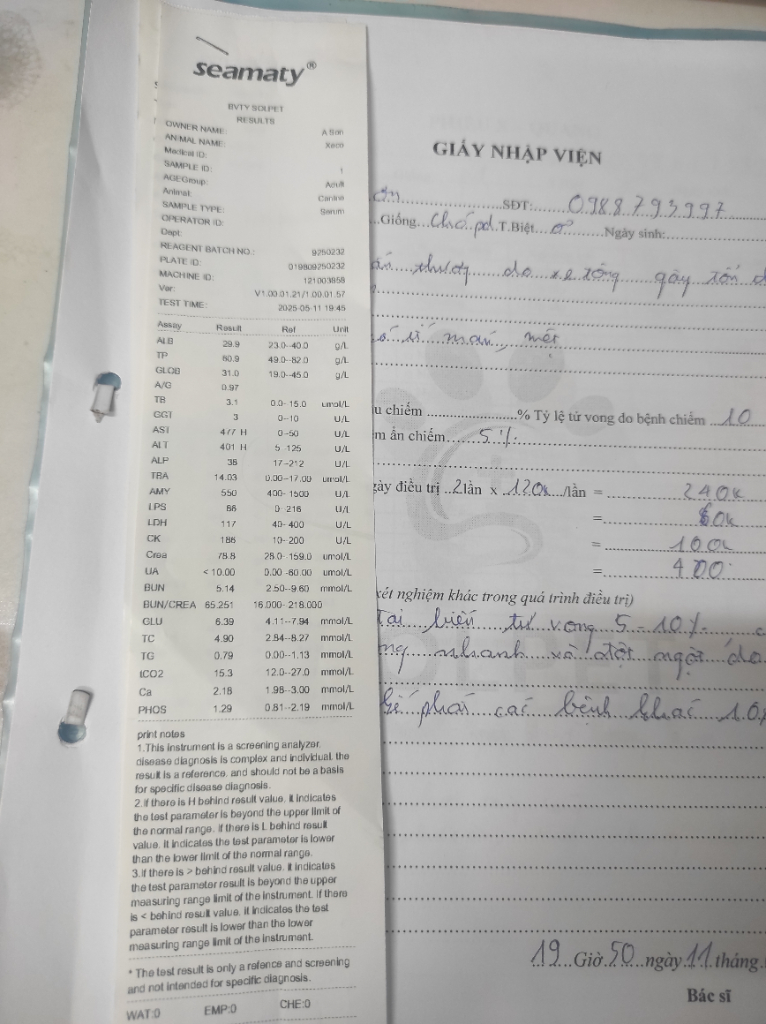 seamaty®
BVTY SOLPET
RESULTS
OWNER NAME: A Son
ANIMAL NAME:
Medical ID:
SAMPLE ID: 1
AGEGroup: Adult
Animal: Canine
SAMPLE TYPE: Serum
OPERATOR ID:
Dept:
REAGENT BATCH NO.: 9250232
PLATE ID: 019809250232
MACHINE ID: 121003858
Ver: V1.00.01.21/1.00.01.57
TEST TIME: 2025-05-11 19:45
Assay Result Ref Unit
ALB 29.9 23.0--40.0 g/L
TP 60.9 49.0--82.0 g/L
GLOB 31.0 19.0--45.0 g/L
A/G 0.97
TB 3.1 0.0--15.0 umol/L
GGT 3 0--10 U/L
AST 477 H 0--50 U/L
ALT 401 H 5--125 U/L
ALP 36 17--212 U/L
TBA 14.03 0.00--17.00 umol/L
AMY 550 400--1500 U/L
LPS 86 0--216 U/L
LDH 117 40--400 U/L
CK 186 10--200 U/L
Crea 78.8 28.0--159.0 umol/L
UA <10.00 0.00--60.00 umol/L
BUN 5.14 2.50--9.60 mmol/L
BUN/CREA 65.251 16.000--218.000
GLU 6.39 4.11--7.94 mmol/L
TC 4.90 2.84--8.27 mmol/L
TG 0.79 0.00--1.13 mmol/L
tCO2 15.3 12.0--27.0 mmol/L
Ca 2.18 1.98--3.00 mmol/L
PHOS 1.29 0.81--2.19 mmol/L
print notes
1.This instrument is a screening analyzer.
disease diagnosis is complex and individual. the
result is a reference. and should not be a basis
for specific disease diagnosis.
2.if there is H behind result value. it indicates
the test parameter is beyond the upper limit of
the normal range. if there is L behind result
value. it indicates the test parameter is lower
than the lower limit of the normal range.
3.if there is > behind result value. it indicates
the test parameter result is beyond the upper
measuring range limit of the instrument. if there
is < behind result value. it indicates the test
parameter result is lower than the lower
measuring range limit of the instrument.
* The test result is only a refence and screening
and not intended for specific diagnosis.
WAT:0 EMP:0 CHE:0
GIẤY NHẬP VIỆN
SĐT: 0988793997
Giống Chó pd T.Biệt ♂ Ngày sinh:
thương do xe tông gây tổn
máu, mệt
u chiếm % Tỷ lệ tử vong do bệnh chiếm 10
m ẩn chiếm 5%
gày điều trị 2 lần x 120k /lần = 240k
= 60k
= 100k
= 400
xét nghiệm khác trong quá trình điều trị)
Tai biến tử vong 5-10%
nhanh và đột ngột do
phải các bệnh khác 10%
19 Giờ 50 ngày 11 tháng
Bác sĩ